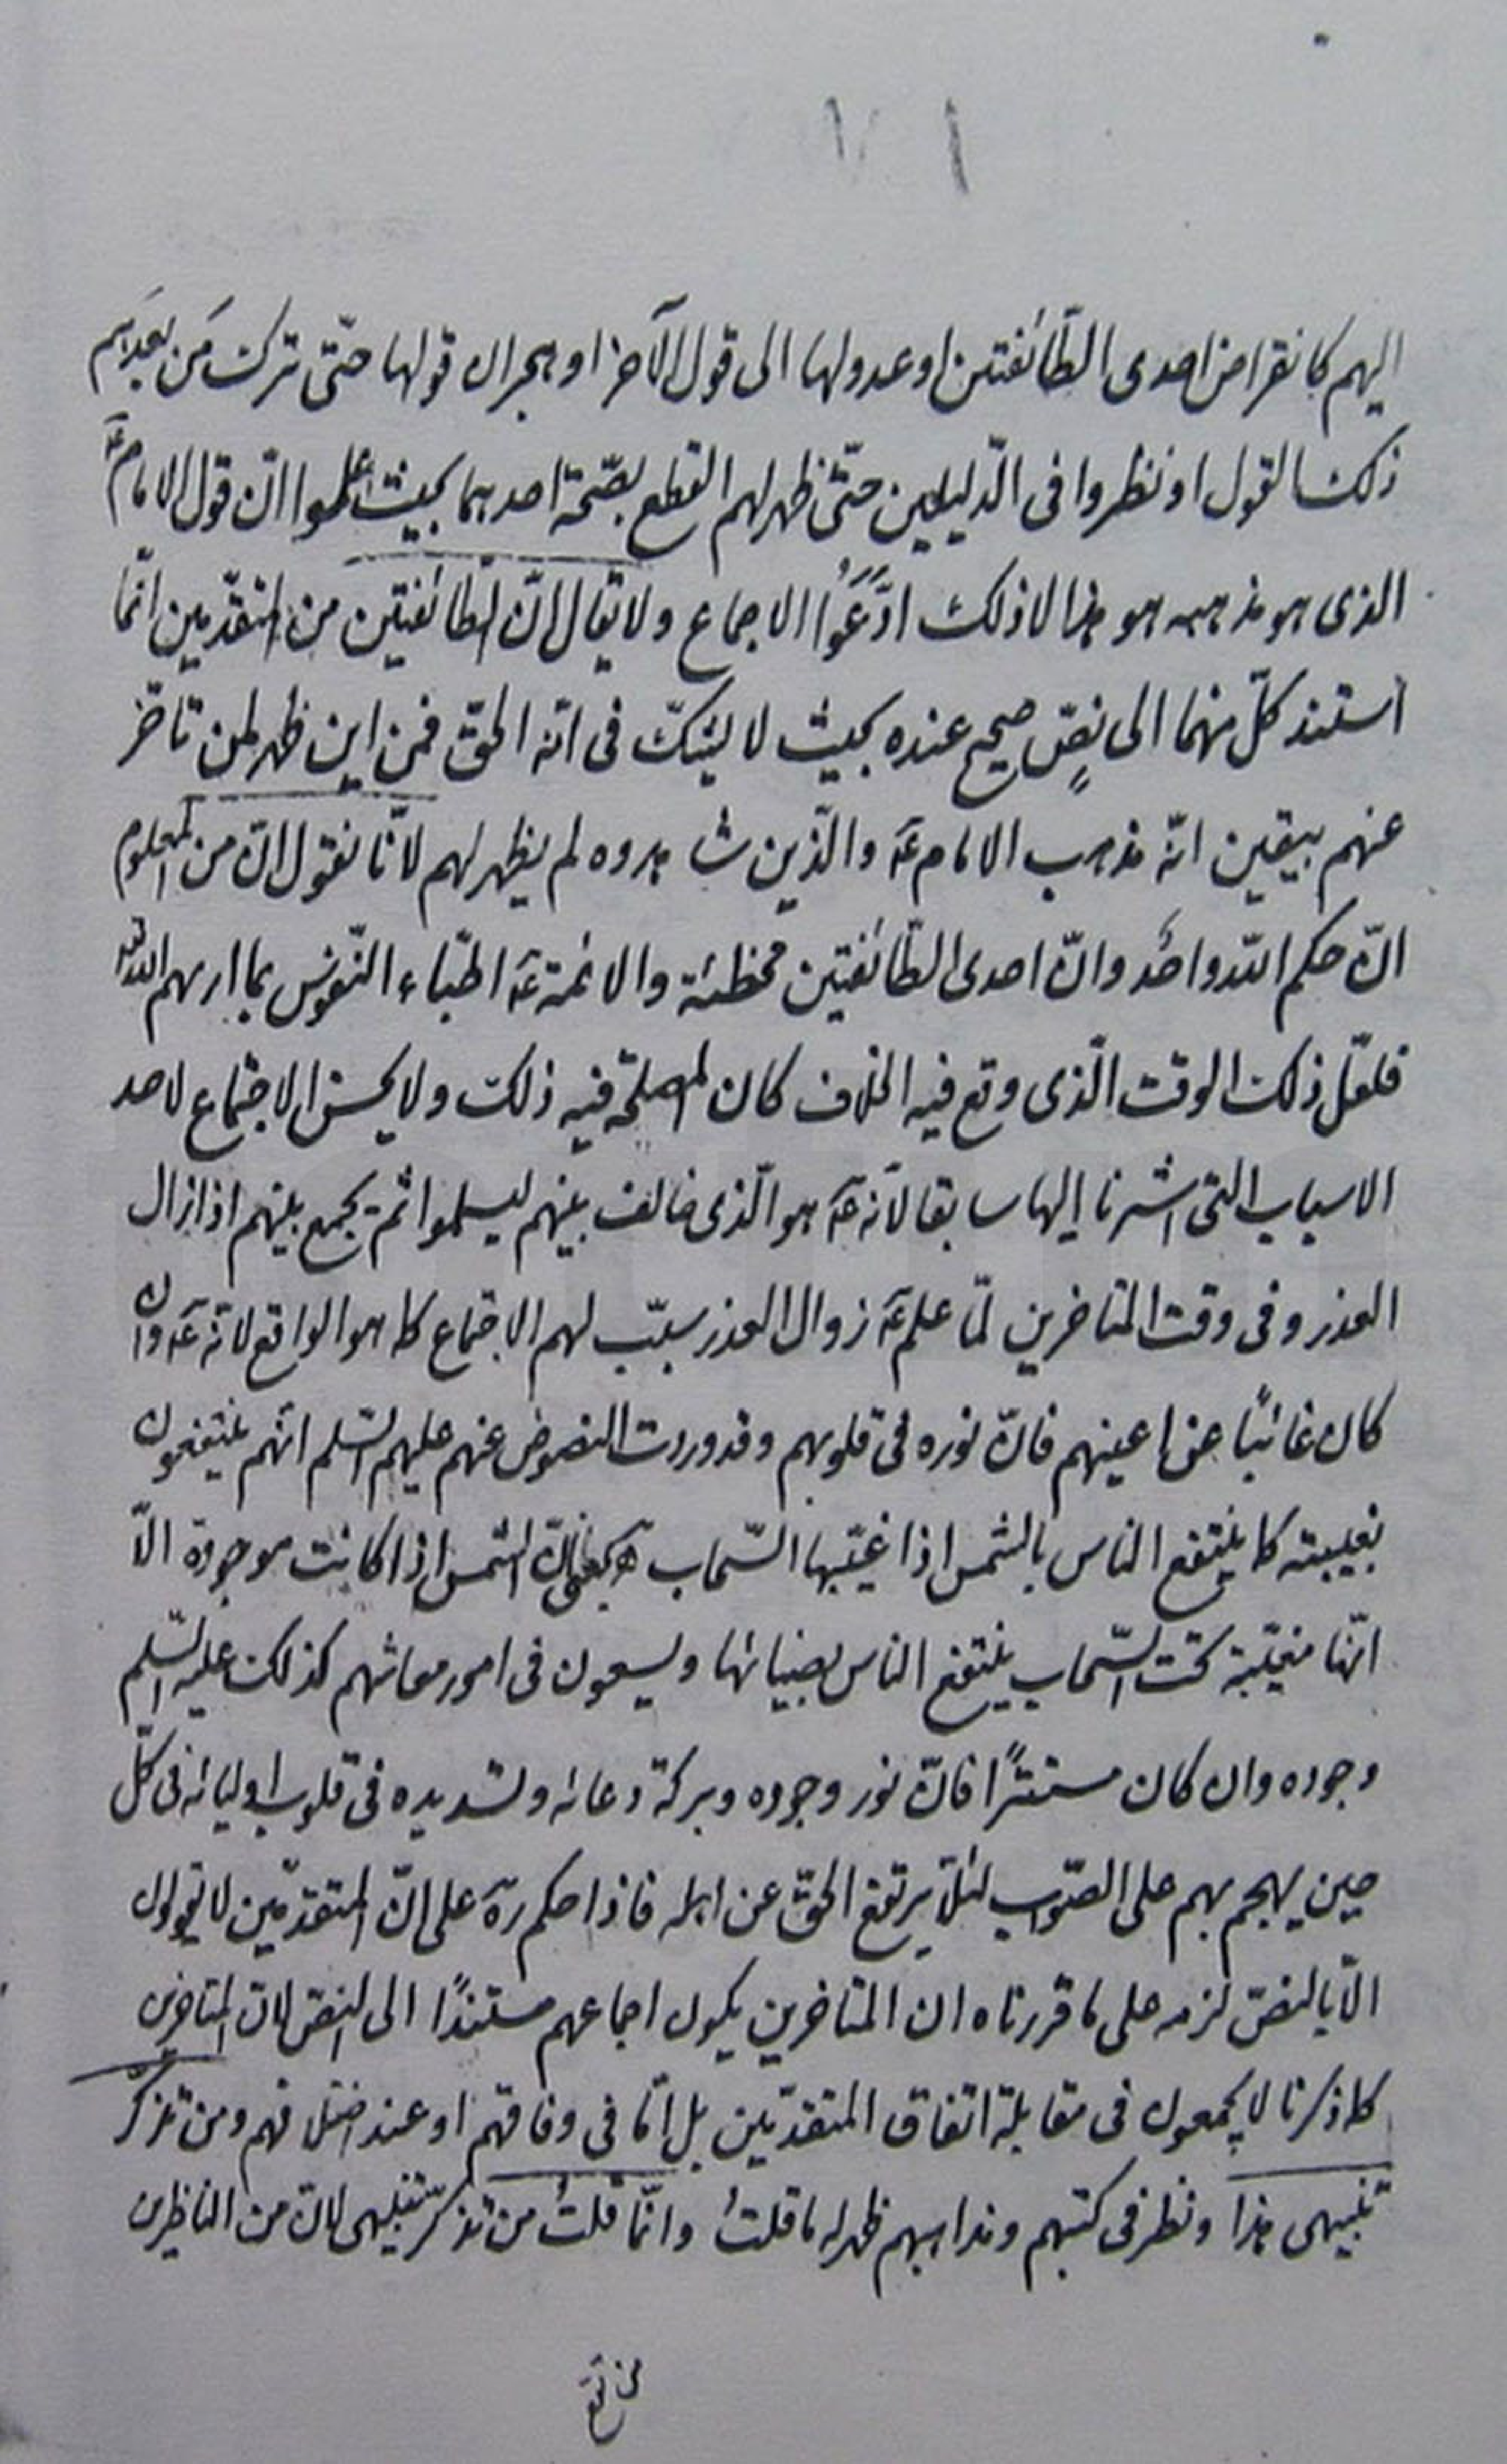 اليهم كانقراض احدى الطّائفتين او عدولها الى قول الآخر او هجران قولها حتّى ترك من بعدهم
ذلك القول او نظروا فى الدّليلين حتّى ظهر لهم القطع بصّحة احدهما بحيث علموا انّ قول الامام عۤ
الذى هو مذهبه هو هذا لا ذلك ادّعَوُا الاجماع ولا يقال انّ الطائفتين من المتقدّمين انّما
استند كلّ منهما الى نصٍّ صحيح عنده بحيث لا يشكّ فى انّه الحقّ فمن اين ظهر لمن تاخّر
عنهم بيقين انّه مذهب الامام عۤ والّذين شاهدوه لم يظهر لهم لانّا نقول انّ من المعلوم
انّ حكم اللّه واحد وانّ احدى الطّائفتين مخطئة والائمة عۤ اطبّاء النّفوس بما اريهم اللّه
فلعّل ذلك الوقت الّذى وقع فيه الخلاف كان المصلحة فيه ذلك ولا يحسن الاجتماع لاحد
الاسباب التى اشرنا إليها سابقا لانّه عۤ هو الّذى خالف بينهم ليسلموا ثم يجمع بينهم اذا زال
العذر وفى وقت المتاخرين لمّا علم عۤ زوال العذر سبّب لهم الاجتماع كما هو الواقع لانّه عۤ وان
كان غائبًا عن اعينهم فانّ نوره فى قلوبهم وقد وردت النصوص عنهم عليهم السّلم انّهم ينتفعون
بغيبته كما ينتفع الناس بالشمس اذا غيّبها السّحاب يعنى انّ الشمس اذا كانت موجودة الّا
انّها مغيّبة تحت السّحاب ينتفع الناس بضيائها ويسعون فى امور معاشهم كذلك عليه السّلم
وجوده وان كان مستترًا فانّ نور وجوده وبركة دعائه وتسديده فى قلوب اوليائه فى كلّ
حين يهجم بهم على الصّواب لئلّا يرتفع الحقّ عن اهله فاذا حكم رۤه على انّ المتقدّمين لا يقولون
الّا بالنصّ لزمه على ما قررناه ان المتاخرين يكون اجماعهم مستندًا الى النصّ لانّ المتاخرين
كما ذكرنا لا يجمعون فى مقابلة اتفاق المتقدّمين بل امّا فى وفاقهم او عند اختلافهم ومن تذكّر
تنبيهى هذا ونظر فى كتبهم ومذاهبهم ظهر له ما قلتُ وانّما قلتُ من تذكّر تنبيهى لانّ من الناظرين
من تقع